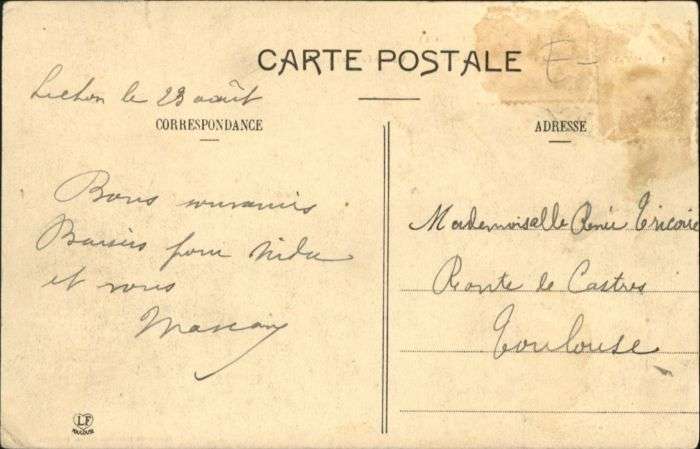 CARTE POSTALE
E-
Luchon le 23 août
CORRESPONDANCE
ADRESSE
Bons souvenirs
Baisers pour
et vous
Mademoiselle Renée Tricoire
Route de Castres
Toulouse
LF
TOULOUSE